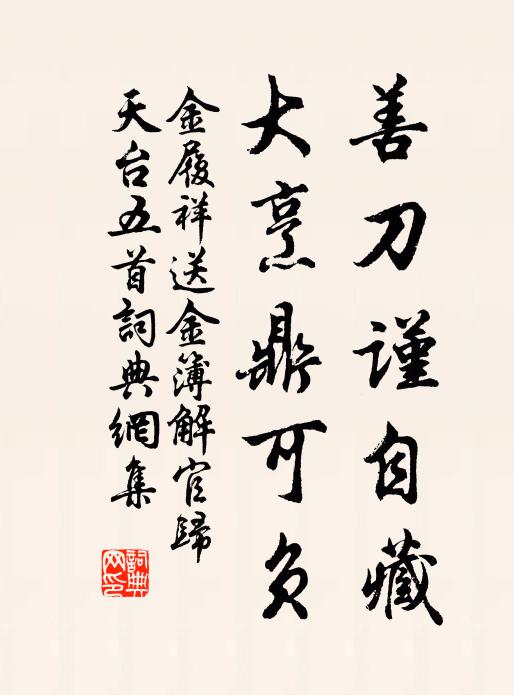 善刀謹自藏
大烹鼎可負
金履祥送金簿解官歸
天台五首詞典網集
詞典
网印